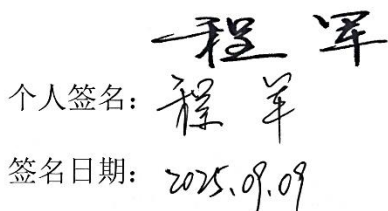 程军
个人签名：程军
签名日期：2025.09.09